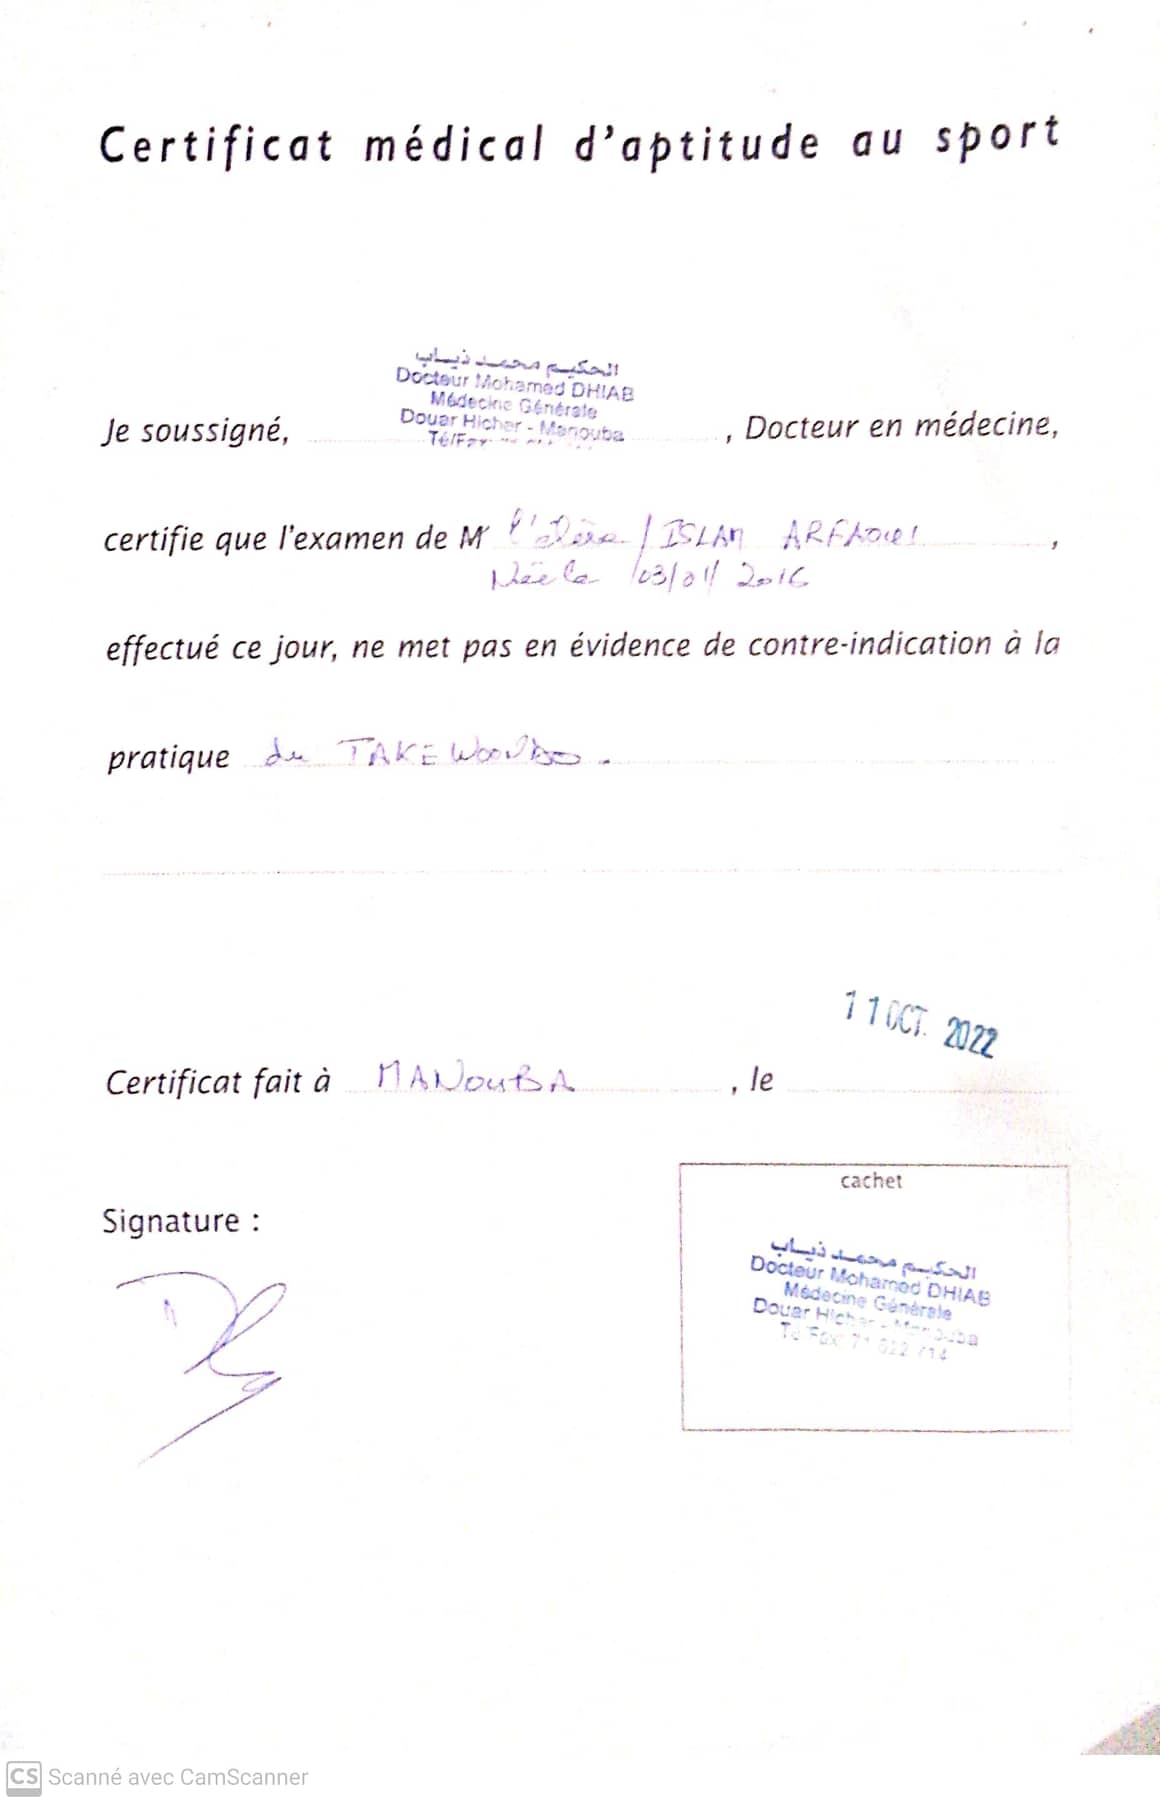 Certificat médical d'aptitude au sport
الحكيم محمد ذياب
Docteur Mohamed DHIAB
Médecine Générale
Douar Hicher - Manouba
Té/Fax
Je soussigné, , Docteur en médecine,
certifie que l'examen de Mr l'élève / ISLAM ARFAOUI ,
Née le 03/01/2016
effectué ce jour, ne met pas en évidence de contre-indication à la
pratique du TAKEWOONDO.
11 OCT. 2022
Certificat fait à MANOUBA , le
cachet
Signature :
الحكيم محمد ذياب
Docteur Mohamed DHIAB
Médecine Générale
Douar Hicher - Manouba
Té/Fax 71 622 714
CS Scanné avec CamScanner